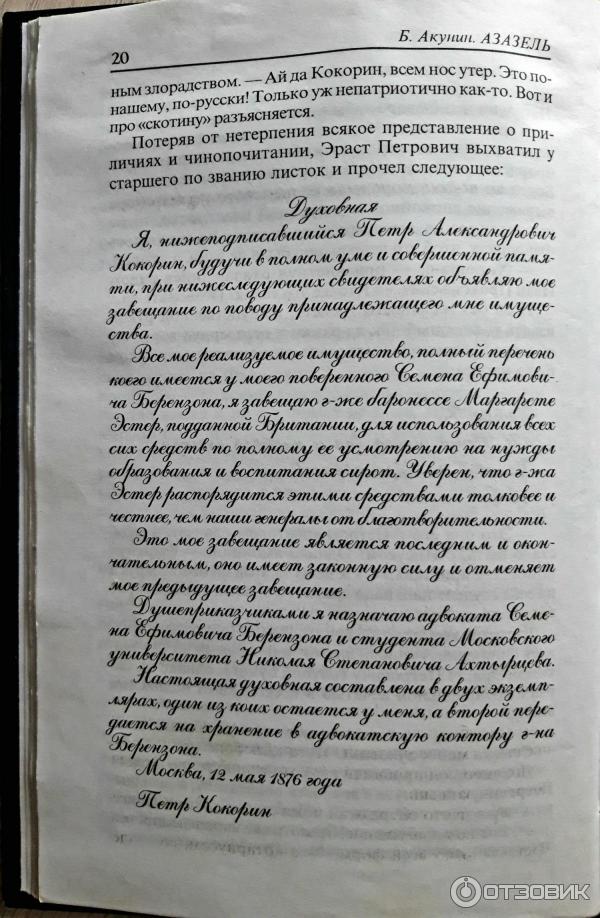 20
Б. Акунин. АЗАЗЕЛЬ
ным злорадством. — Ай да Кокорин, всем нос утер. Это по-
нашему, по-русски! Только уж непатриотично как-то. Вот и
про «скотину» разъясняется.
Потеряв от нетерпения всякое представление о при-
личиях и чинопочитании, Эраст Петрович выхватил у
старшего по званию листок и прочел следующее:
Духовная
Я, нижеподписавшийся Петр Александрович
Кокорин, будучи в полном уме и совершенной памя-
ти, при нижеследующих свидетелях объявляю мое
завещание по поводу принадлежащего мне имуще-
ства.
Все мое реализуемое имущество, полный перечень
коего имеется у моего поверенного Семена Ефимови-
ча Берензона, я завещаю г-же баронессе Маргарете
Эстер, подданной Британии, для использования всех
сих средств по полному ее усмотрению на нужды
образования и воспитания сирот. Уверен, что г-жа
Эстер распорядится этими средствами толковее и
честнее, чем наши генералы от благотворительности.
Это мое завещание является последним и окон-
чательным, оно имеет законную силу и отменяет
мое предыдущее завещание.
Душеприказчиками я назначаю адвоката Семе-
на Ефимовича Берензона и студента Московского
университета Николая Степановича Ахтырцева.
Настоящая духовная составлена в двух экземп-
лярах, один из коих остается у меня, а второй пере-
дается на хранение в адвокатскую контору г-на
Берензона.
Москва, 12 мая 1876 года
Петр Кокорин
ОТЗОВИК